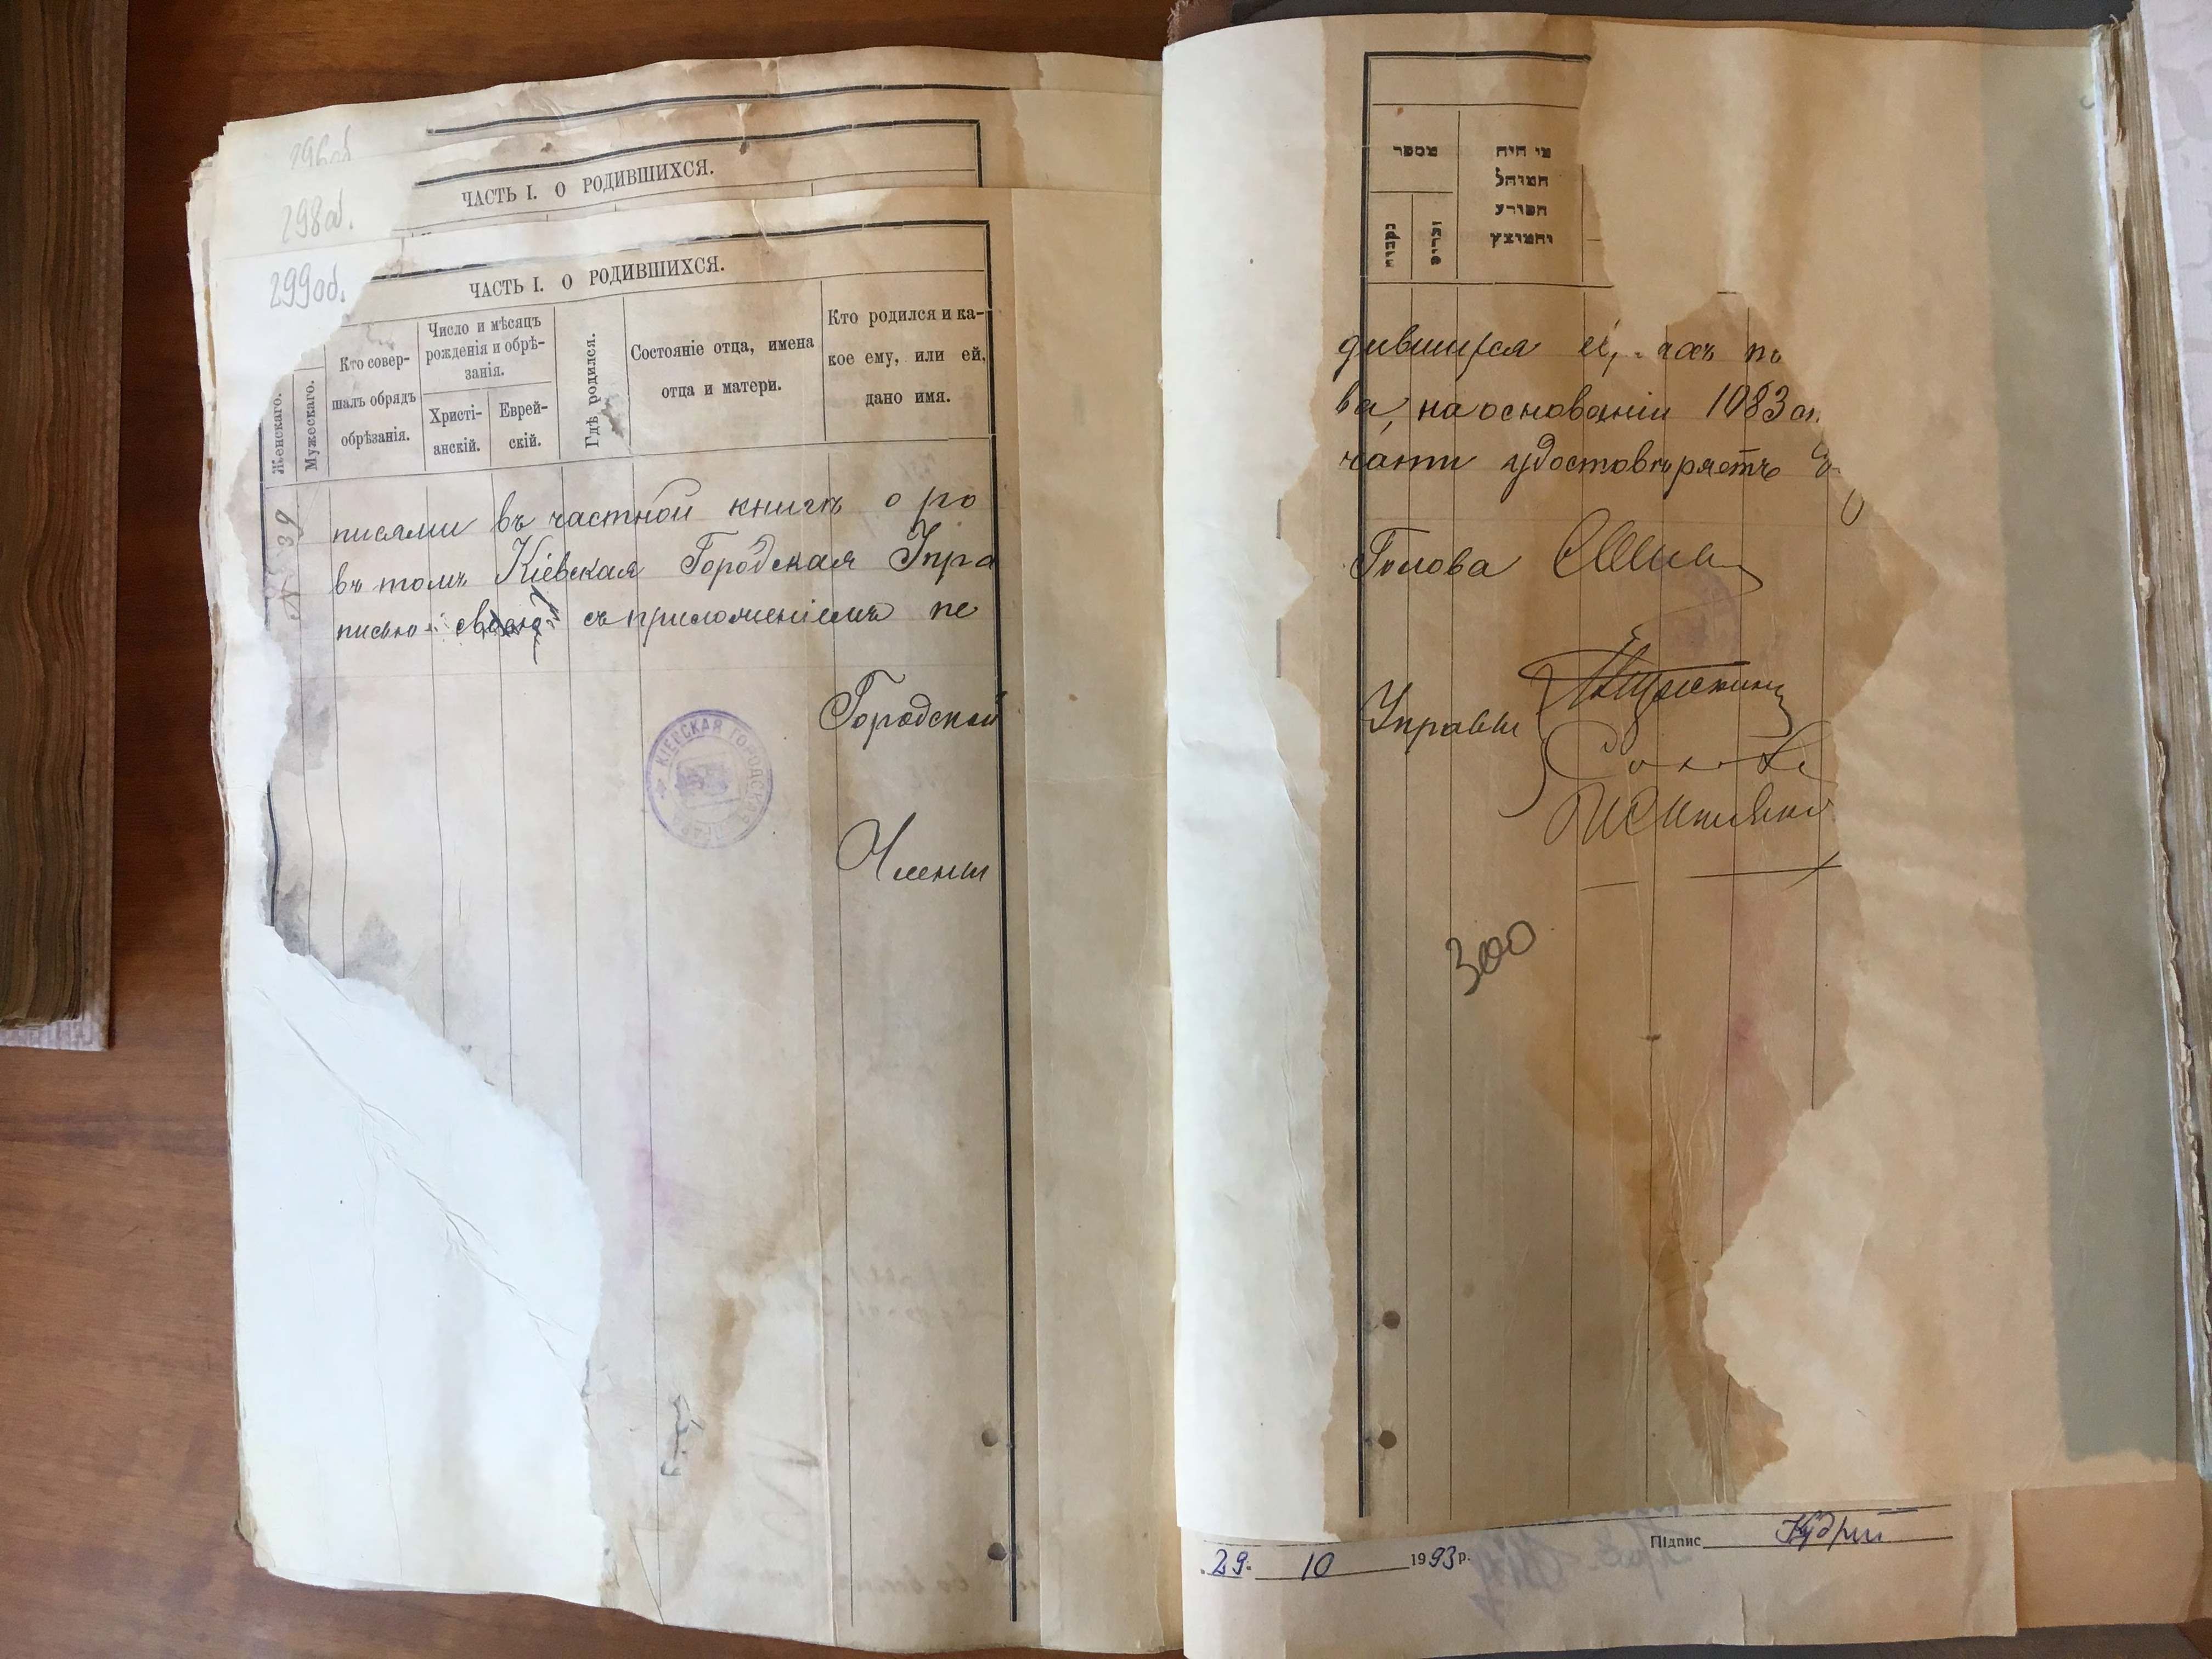 296об
298об.
ЧАСТЬ I. О РОДИВШИХСЯ.
299об.
ЧАСТЬ I. О РОДИВШИХСЯ.
Женскаго.
Мужескаго.
Кто совер-
шалъ обрядъ
обрѣзанія.
Число и мѣсяцъ
рожденія и обрѣ-
занія.
Христі-
анскій.
Еврей-
скій.
Гдѣ родился.
Состояніе отца, имена
отца и матери.
Кто родился и ка-
кое ему, или ей,
дано имя.
писями въ частной книгѣ о ро
въ томъ Кіевская Городская Упра
писью съ приложеніемъ пе
Городской
КІЕВСКАЯ ГОРОДСКАЯ УПРАВА
Члены
מספר
נקבות
זכרים
מי היה
המוהל
הפורע
והמוצץ
дившихся
ва, на основаніи 1083 ст.
чати удостовѣряетъ
Голова
Управы
300
29. 10 1993 р.
Підпис Кудрий